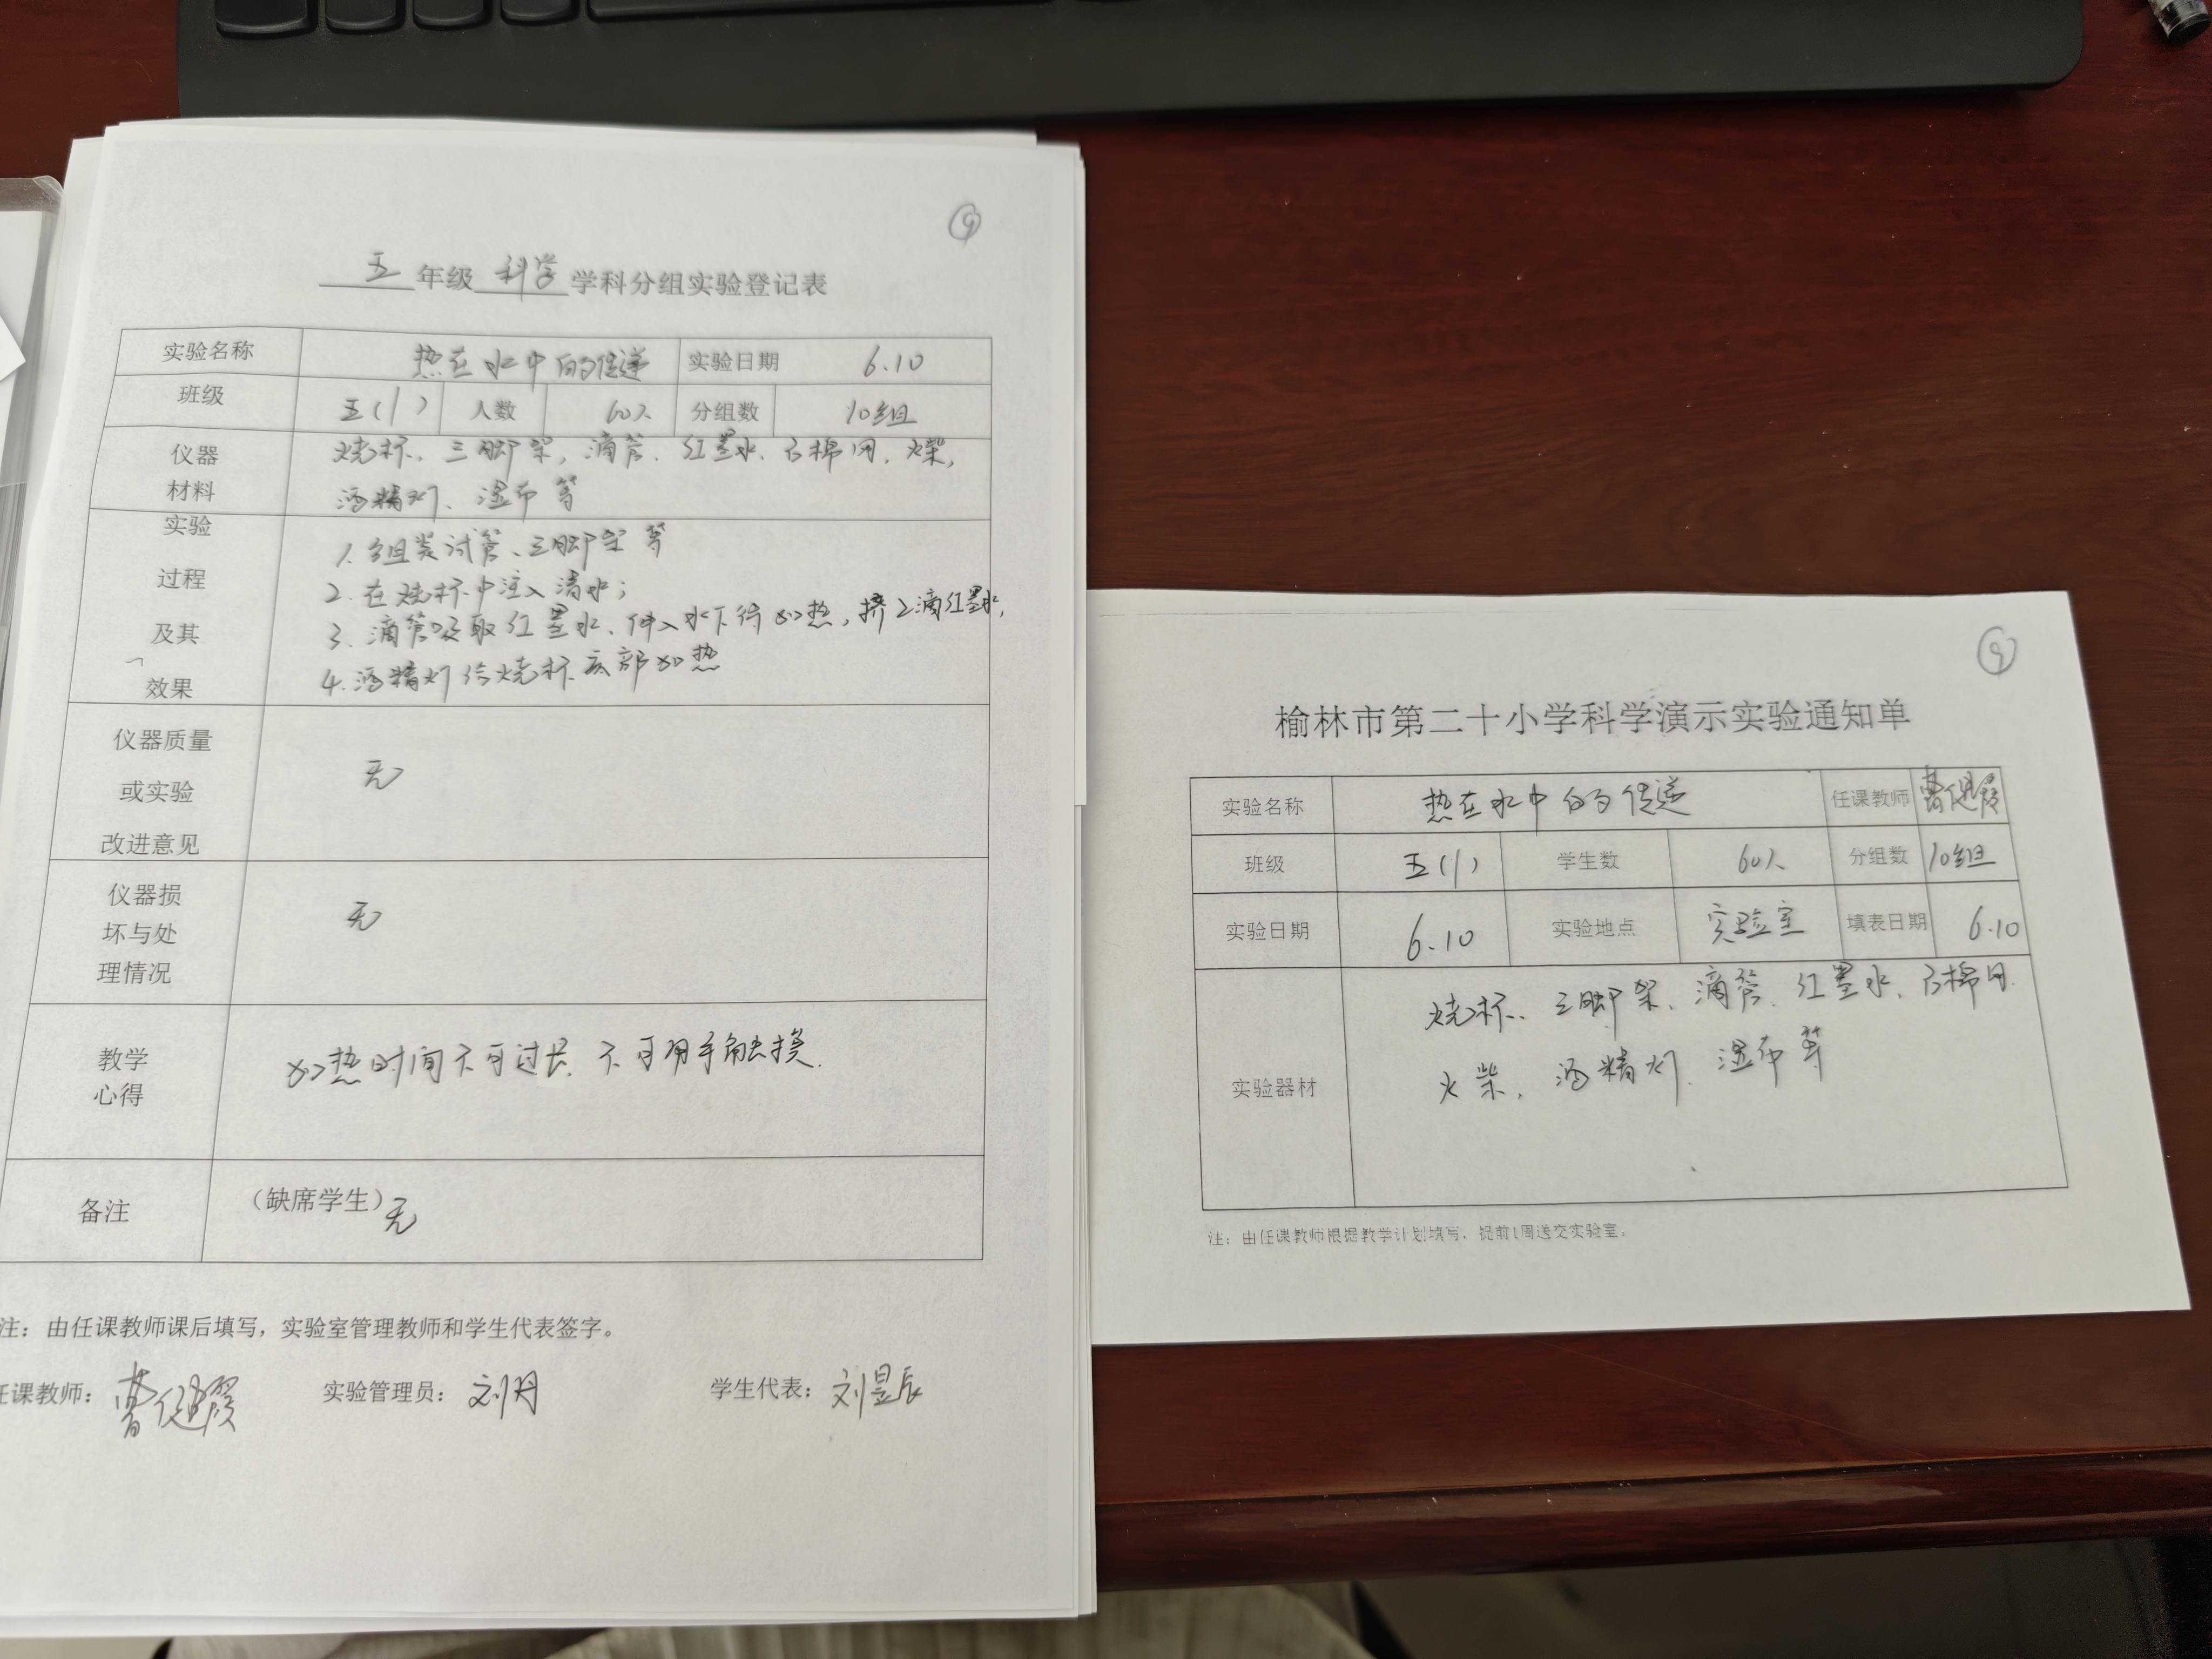 ⑨
五年级科学学科分组实验登记表
实验名称 热在水中的传递 实验日期 6.10
班级 五(1) 人数 60人 分组数 10组
仪器材料 烧杯、三脚架、滴管、红墨水、石棉网、火柴、
酒精灯、湿布等
实验过程及其效果
1. 组装试管、三脚架等
2. 在烧杯中注入清水;
3. 滴管吸取红墨水、伸入水下待加热,挤2滴红墨水,
4. 酒精灯给烧杯底部加热
仪器质量或实验改进意见 无
仪器损坏与处理情况 无
教学心得 加热时间不可过长、不可用手触摸.
备注 (缺席学生)无
注:由任课教师课后填写,实验室管理教师和学生代表签字。
任课教师: 曹 实验管理员: 刘丹 学生代表: 刘昱辰
⑨
榆林市第二十小学科学演示实验通知单
实验名称 热在水中的传递 任课教师 曹
班级 五(1) 学生数 60人 分组数 10组
实验日期 6.10 实验地点 实验室 填表日期 6.10
实验器材 烧杯、三脚架、滴管、红墨水、石棉网、
火柴、酒精灯、湿布等
注:由任课教师根据教学计划填写,提前1周送交实验室。